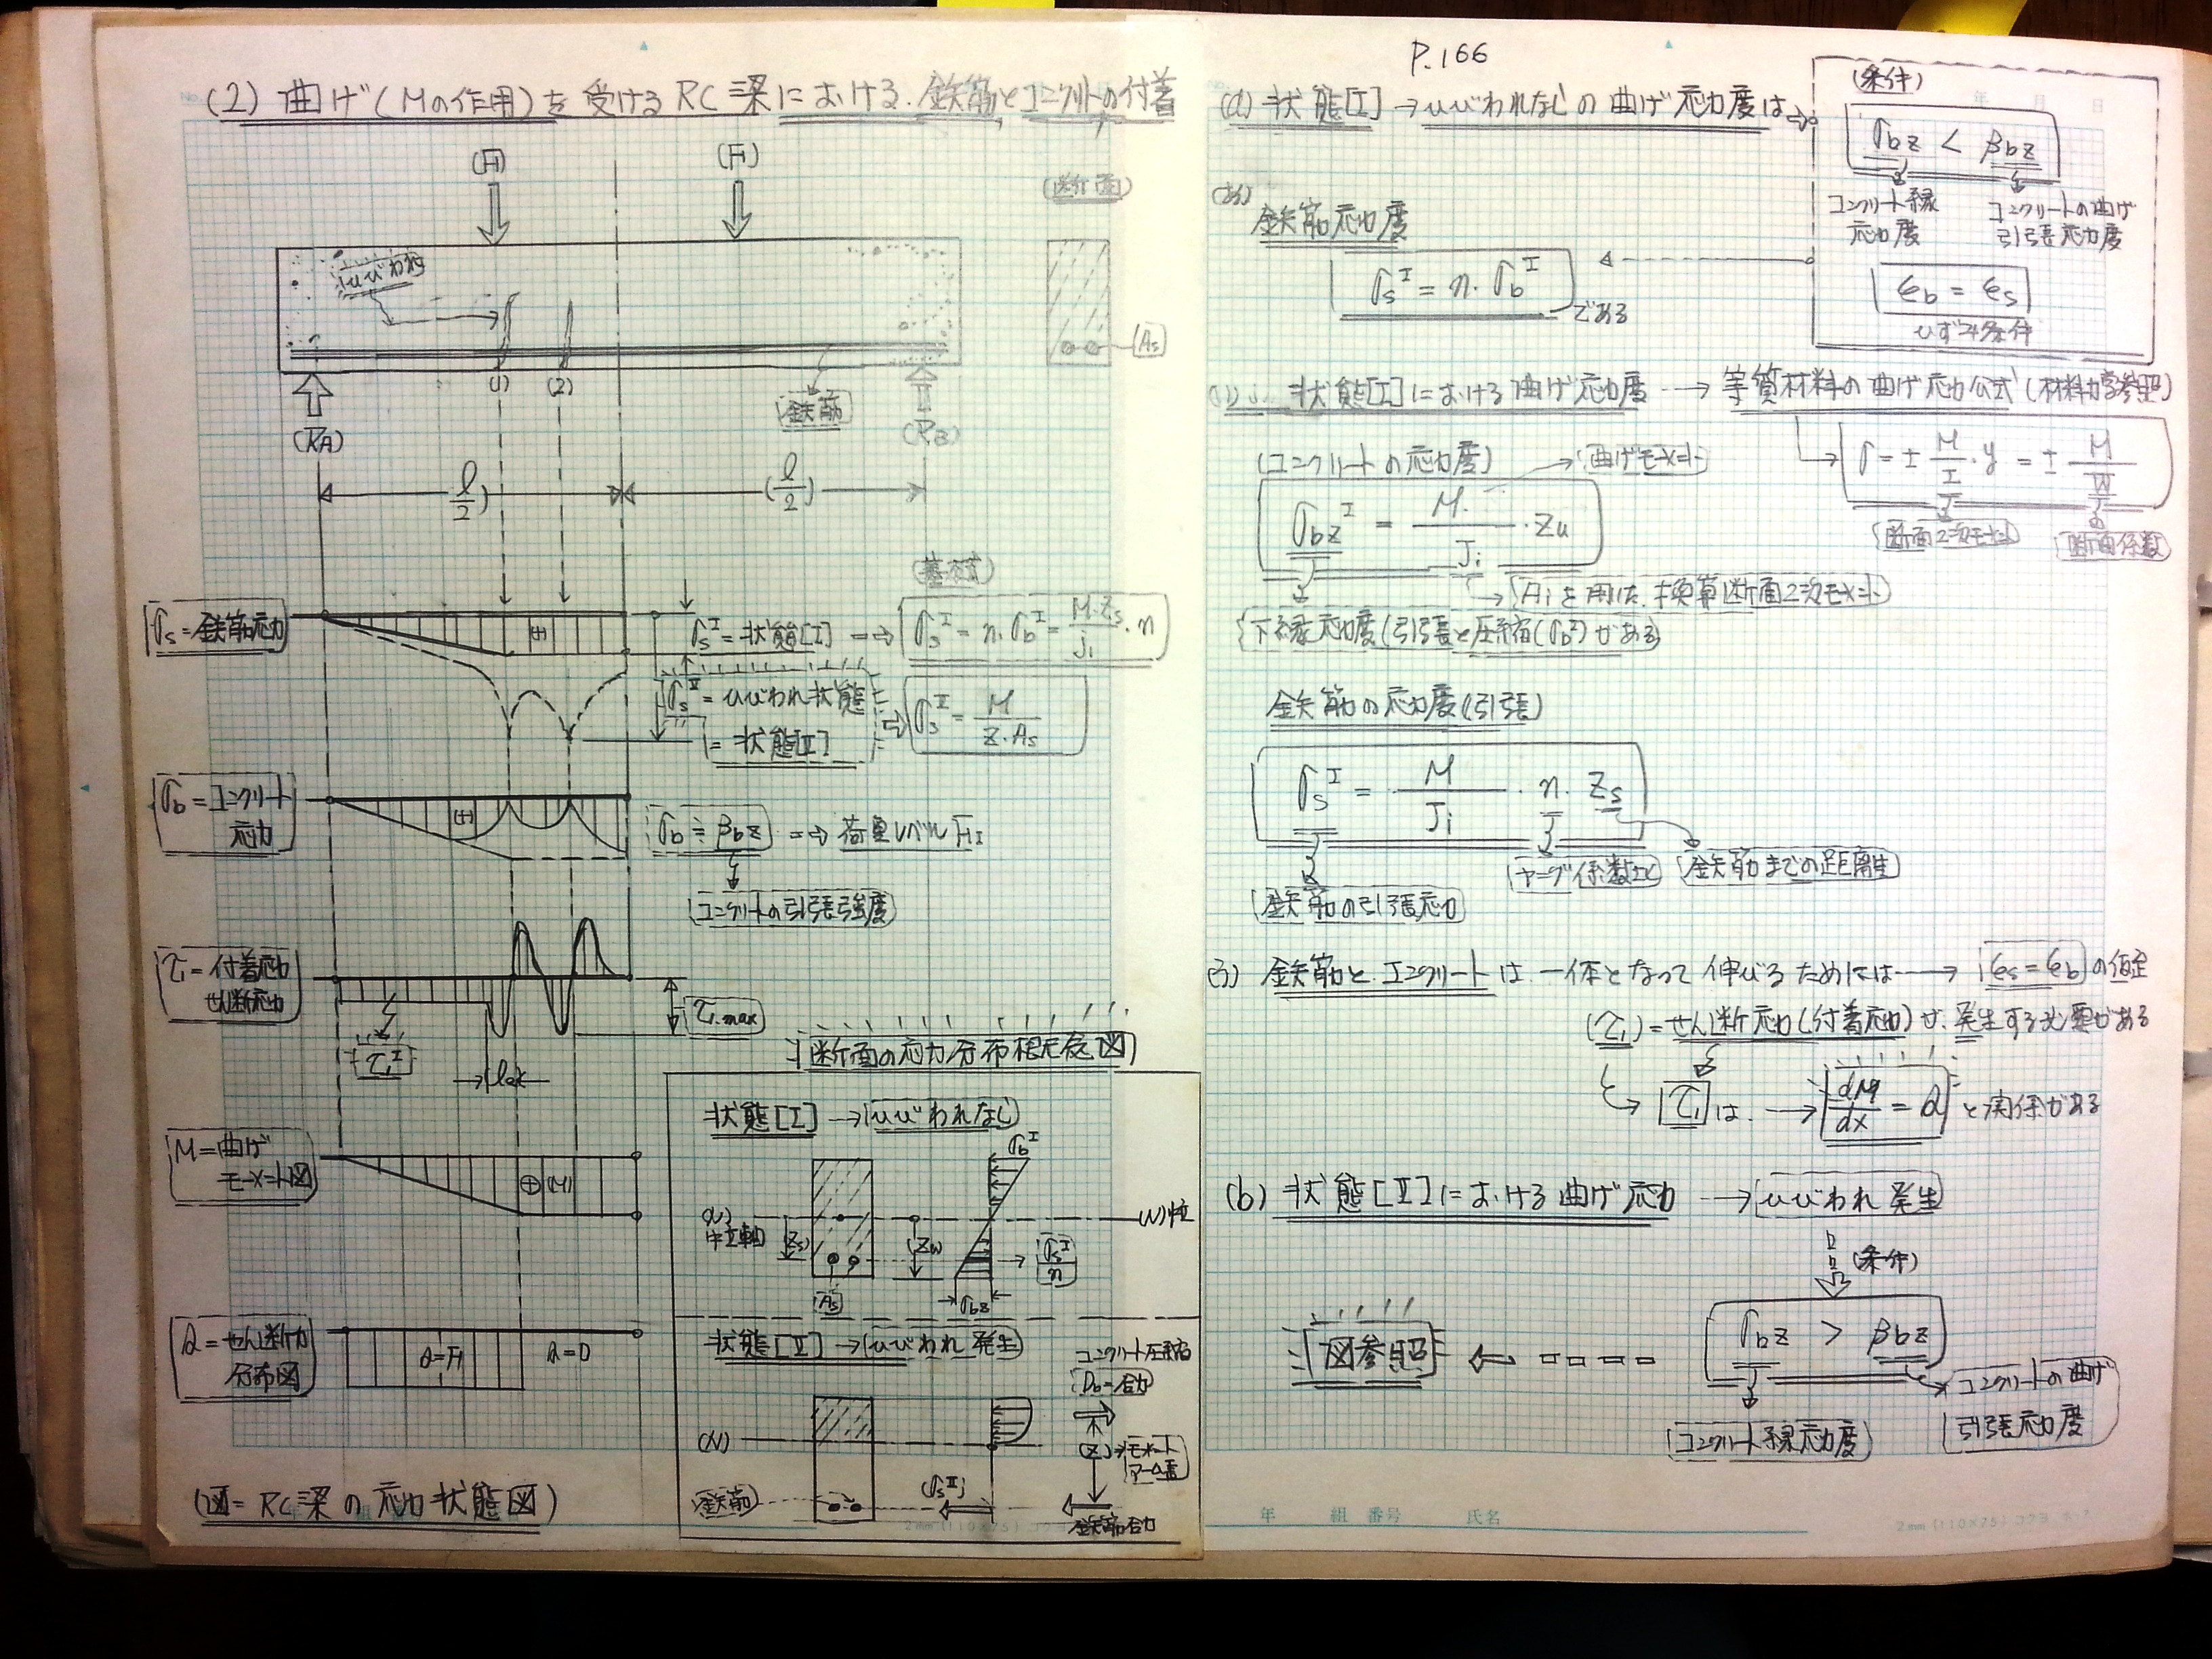 (2) 曲げ(Mの作用)を受けるRC梁における.鉄筋とコンクリートの付着
(F)
(F)
(断面)
ひびわれ
(As)
(1)
(2)
鉄筋
(RA)
(RB)
(ℓ/2)
(ℓ/2)
(基本式)
σs=鉄筋応力
(+)
σs^I=状態[I] → σs^I = n・σb^I = M・Zs/Ji・n
σs^II=ひびわれ状態
=状態[II]
⇒ σs^II = M/Z・As
σb=コンクリート
応力
(+)
σb≒βbz ⇒ 荷重レベルFI
コンクリートの引張強度
τ1=付着応力
せん断応力
τ1.max
τ1^I
M=曲げ
モーメント図
⊕(M)
Q=せん断力
分布図
Q=F
Q=0
(図=RC梁の応力状態図)
断面の応力分布想定仮図
状態[I] → ひびわれなし
σb^I
(N)
中立軸
(Zs)
(Zu)
(N)軸
σs^I/n
As
σbz
状態[II] → ひびわれ発生
コンクリート圧縮
Db=合力
(N)
(Z) → モーメント
アーム長
鉄筋
(σs^II)
鉄筋合力
P.166
(a) 状態[I] → ひびわれなしの曲げ応力度は
(条件)
σbz < βbz
コンクリート縁
応力度
コンクリートの曲げ
引張応力度
εb = εs
ひずみ条件
鉄筋応力度
σs^I = n・σb^I
である
状態[I]における曲げ応力度 → 等質材料の曲げ応力公式(材料力学参照)
σ = ± M/I・y = ± M/W
断面2次モーメント
断面係数
(コンクリートの応力度)
曲げモーメント
σbz^I = M/Ji・Zu
Aiを用いた換算断面2次モーメント
下縁応力度(引張と圧縮(σb^I)がある)
鉄筋の応力度(引張)
σs^I = M/Ji・n・Zs
ヤング係数比
鉄筋までの距離
鉄筋の引張応力
(3) 鉄筋とコンクリートは一体となって伸びるためには → εs=εbの仮定
(τ1)=せん断応力(付着応力)が、発生する必要がある
τ1は → dM/dx = Q と関係がある
(b) 状態[II]における曲げ応力 → ひびわれ発生
(条件)
σbz > βbz
図参照
コンクリート縁応力度
コンクリートの曲げ
引張応力度
年 組 番号 氏名